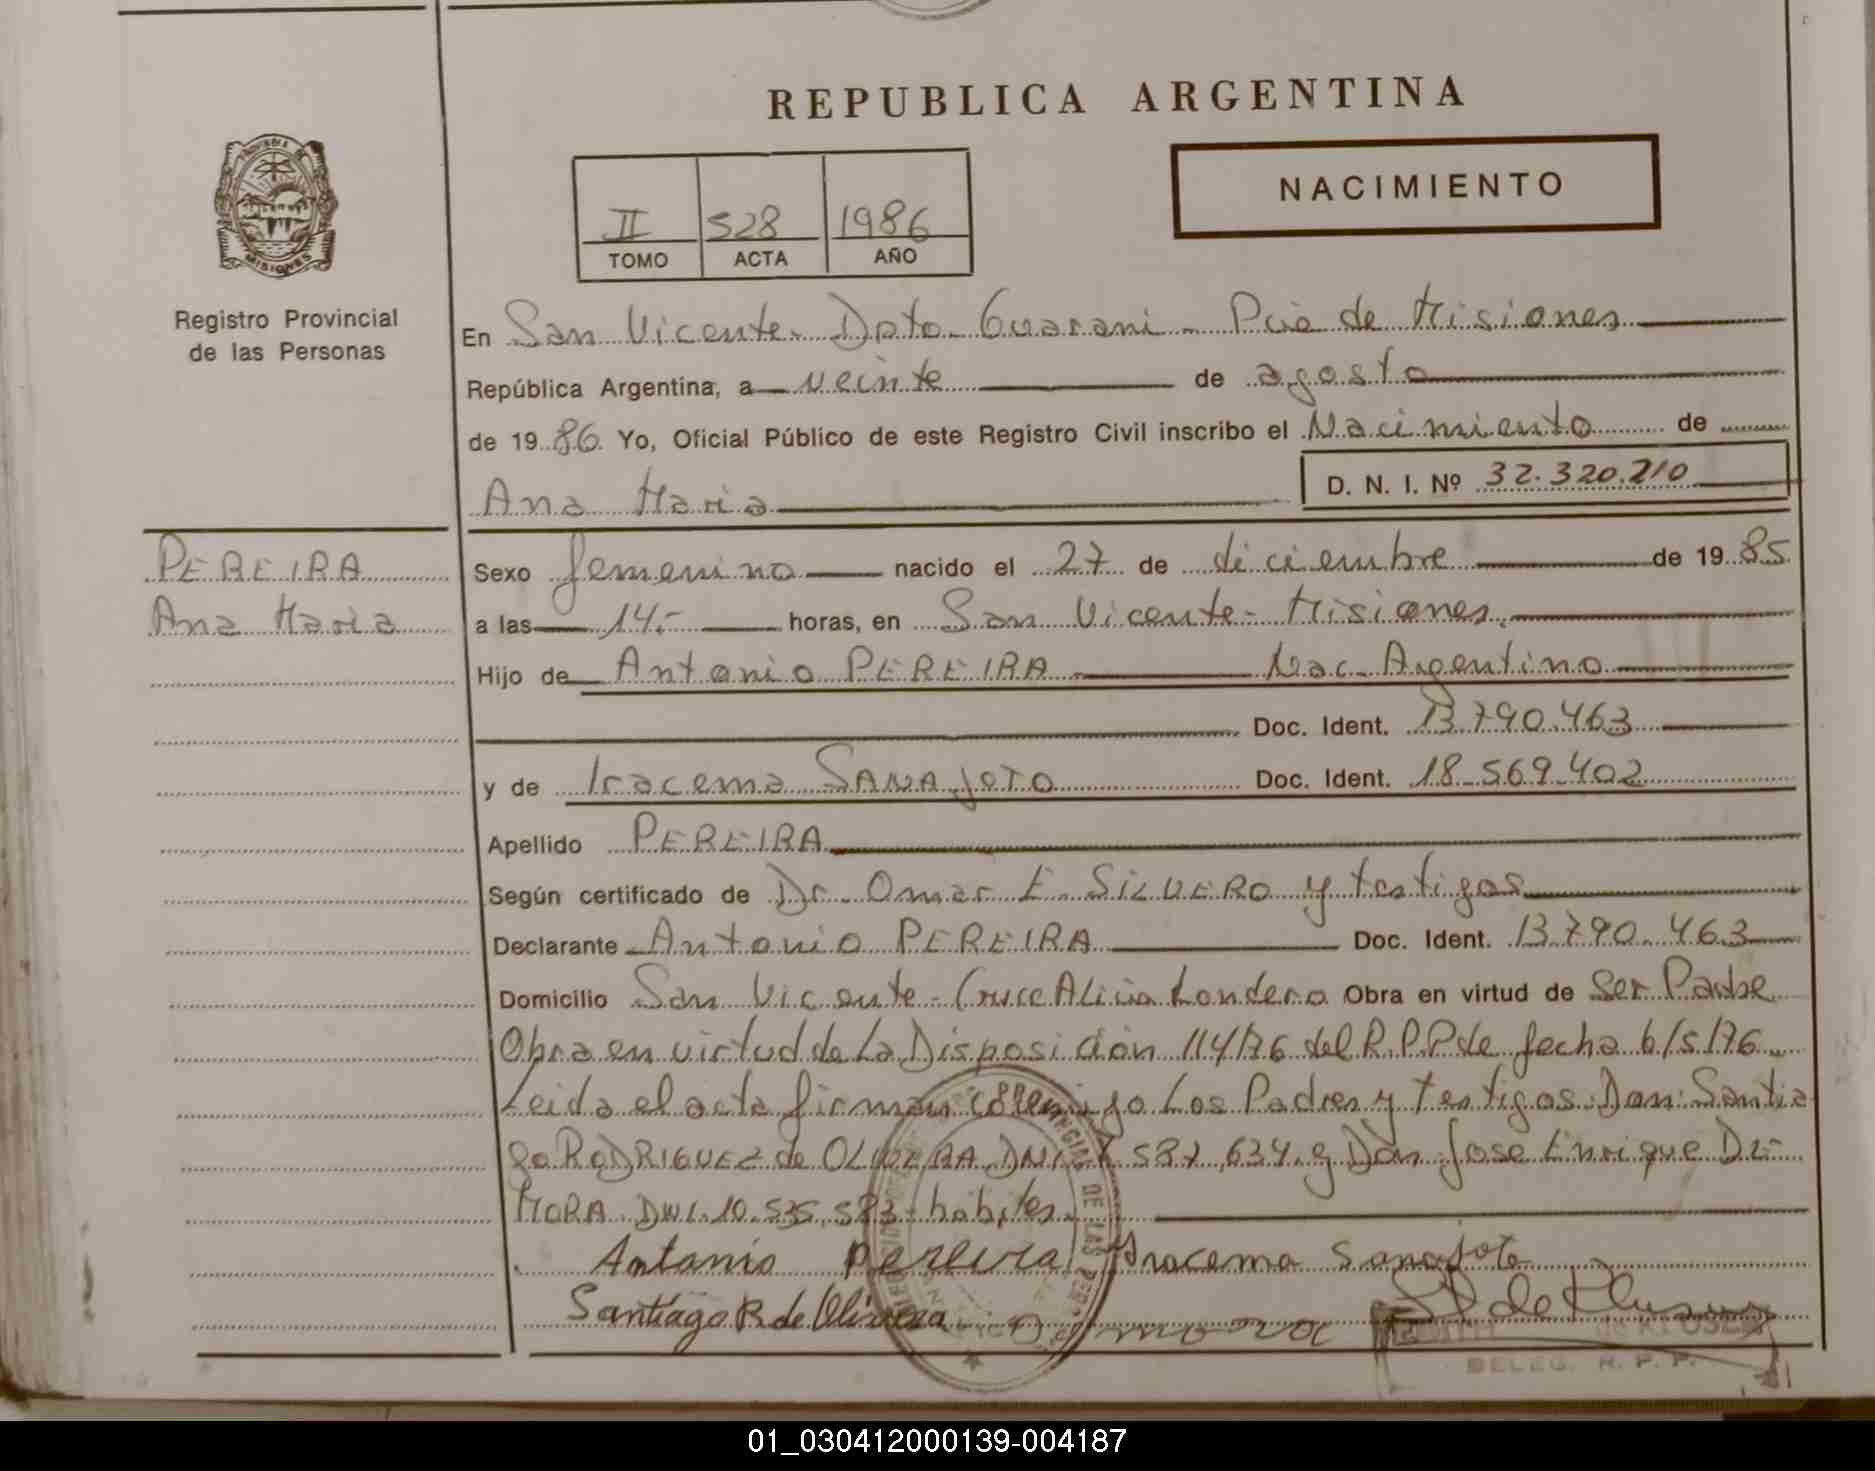 REPUBLICA ARGENTINA
PROVINCIA DE
MISIONES
Registro Provincial
de las Personas
II 528 1986
TOMO ACTA AÑO
NACIMIENTO
En San Vicente - Dpto - Guarani - Pcia de Misiones
República Argentina, a veinte de agosto
de 1986 Yo, Oficial Público de este Registro Civil inscribo el Nacimiento de
D. N. I. Nº 32.320.210
Ana Maria
PEREIRA
Ana Maria
Sexo femenino nacido el 27 de diciembre de 1985
a las 14.- horas, en San Vicente - Misiones.
Hijo de Antonio PEREIRA Nac. Argentino
Doc. Ident. 13.790.463
y de Iracema SANAJOTO Doc. Ident. 18-569.402
Apellido PEREIRA
Según certificado de Dr. Omar E. SILVERO y testigos
Declarante Antonio PEREIRA Doc. Ident. 13.790.463
Domicilio San Vicente - Cruce Alicia Londero Obra en virtud de Ser Padre
Obra en virtud de La Disposición 114/76 del R.P.P de fecha 6/5/76
Leida el acta firman conmigo Los Padres y Testigos Don: Santia
go RODRIGUEZ de OLIVERA DNI 587.634 y Don Jose Enrique DE
MORA DNI. 10.535.583 - habiles.
Antonio Pereira Iracema Sanajoto
Santiago R. de Olivera mora
DELEG. R. P. P.
01_030412000139-004187